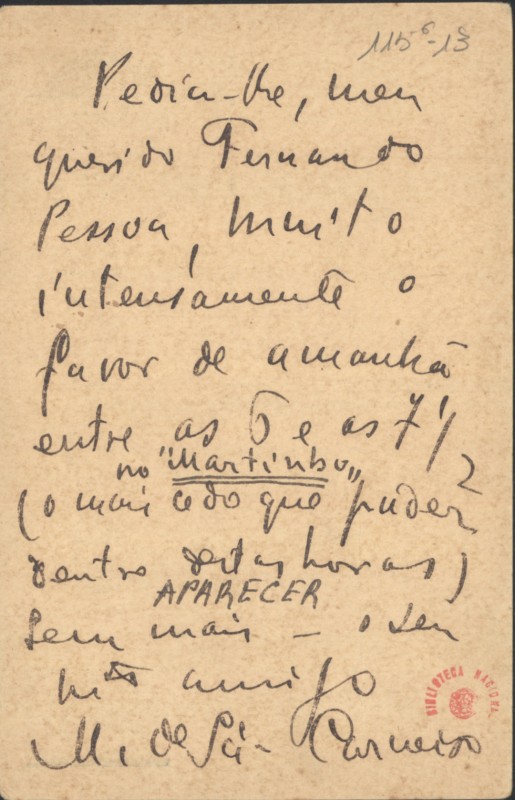 115⁶-13
Pedia-lhe, meu
querido Fernando
Pessoa, muito
intensamente o
favor de amanhã
entre as 6 e as 7 1/2
no "Martinho"
(o mais cedo que puder
dentro destas horas)
APARECER
Sem mais — o seu
mto amigo
M. de Sá-Carneiro
BIBLIOTECA NACIONAL